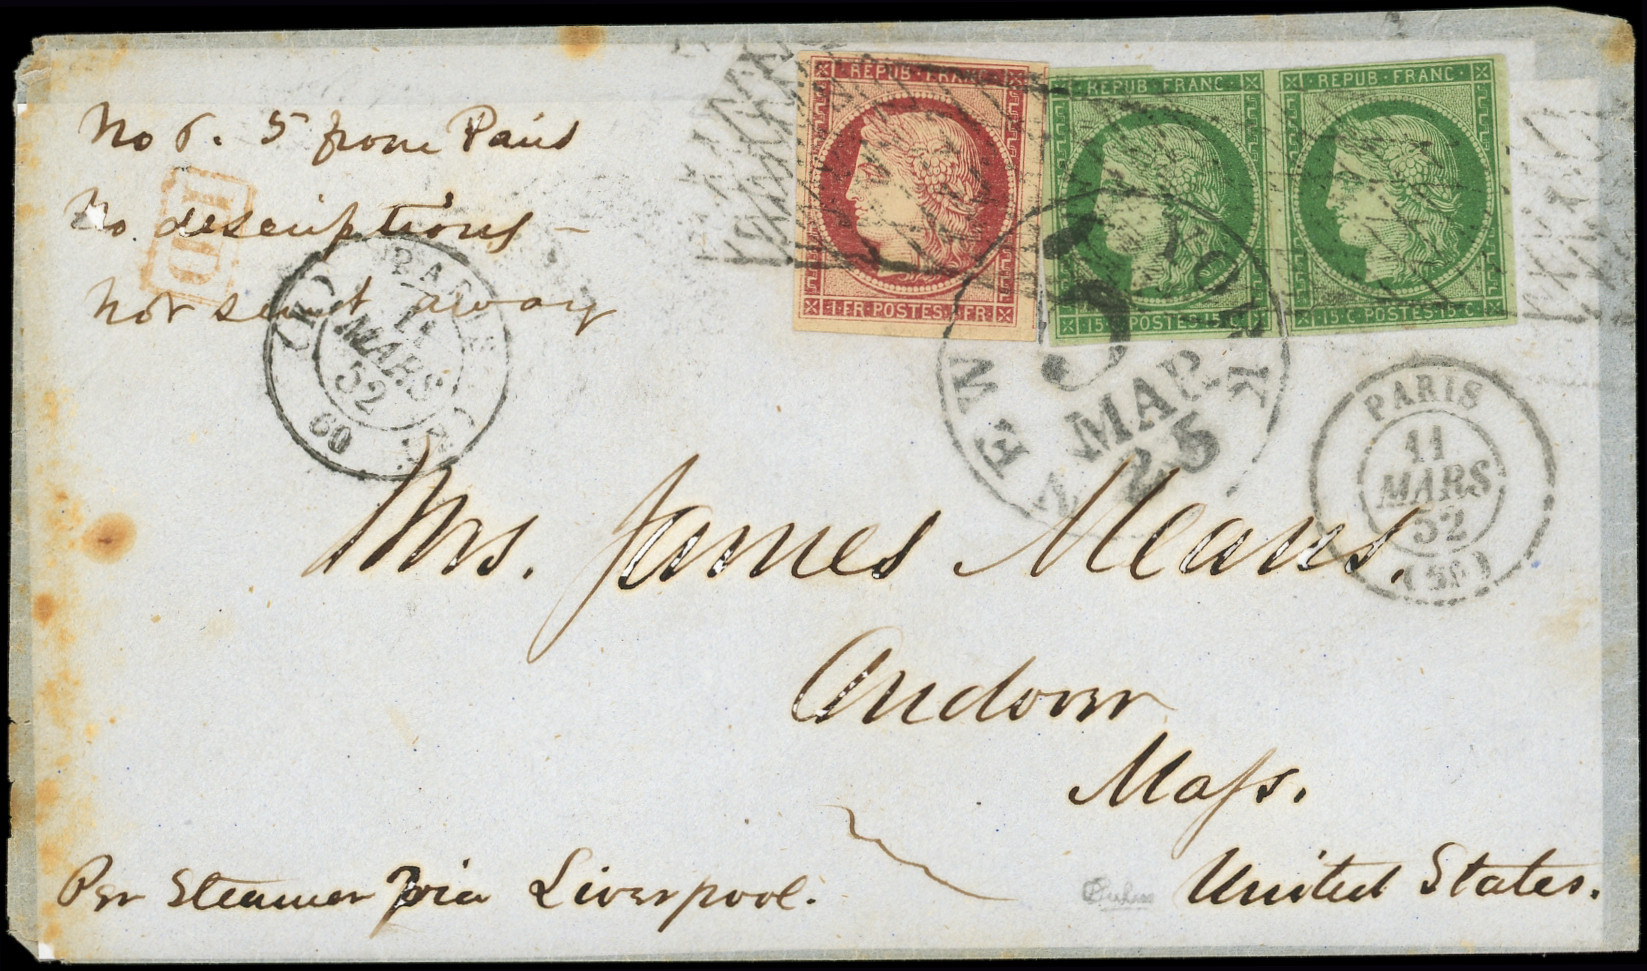 No 5. 5 from Paris
No descriptions –
Not sent away
PD
PARIS
11
MARS
52
60
REPUB · FRANC
1 · FR · POSTES · 1 · FR
REPUB · FRANC
15 · C · POSTES · 15 · C
REPUB · FRANC ·
15 · C · POSTES · 15 · C
NEW YORK
5
MAR
25
PARIS
11
MARS
52
Mrs. James Means.
Andover
Maſs.
United States.
Per Steamer via Liverpool.